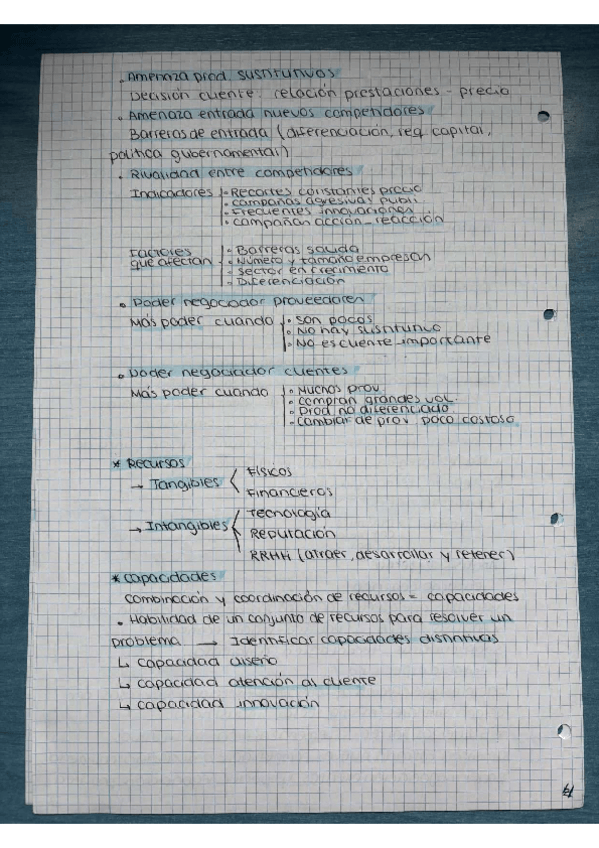 . Amenaza prod. sustitutivos
Decisión cliente: relación prestaciones - precio
. Amenaza entrada nuevos competidores
Barreras de entrada (diferenciación, req capital,
política gubernamental)
. Rivalidad entre competidores
Indicadores
. Recortes constantes precio
. campañas agresivas publi
. Frecuentes innovaciones
. campañan acción - reacción
Factores que afectan
. Barreras salida
. Número y tamaño empresan
. Sector en crecimiento
. Diferenciación
. Poder negociador proveedoren
Más poder cuando
. son pocos
. No hay sustitutivo
. No es cliente importante
. Poder negociador clientes
Más poder cuando
. Muchos prov
. compran grandes vol.
. Prod no diferenciado
. cambiar de prov. poco costoso
* Recursos
→ Tangibles
Físicos
Financieros
→ Intangibles
Tecnología
Reputación
RRHH (atraer, desarrollar y retener)
* Capacidades
Combinación y coordinación de recursos = capacidades
. Habilidad de un conjunto de recursos para resolver un
problema → Identificar capacidades distintivas
↳ capacidad diseño
↳ capacidad atención al cliente
↳ capacidad innovación